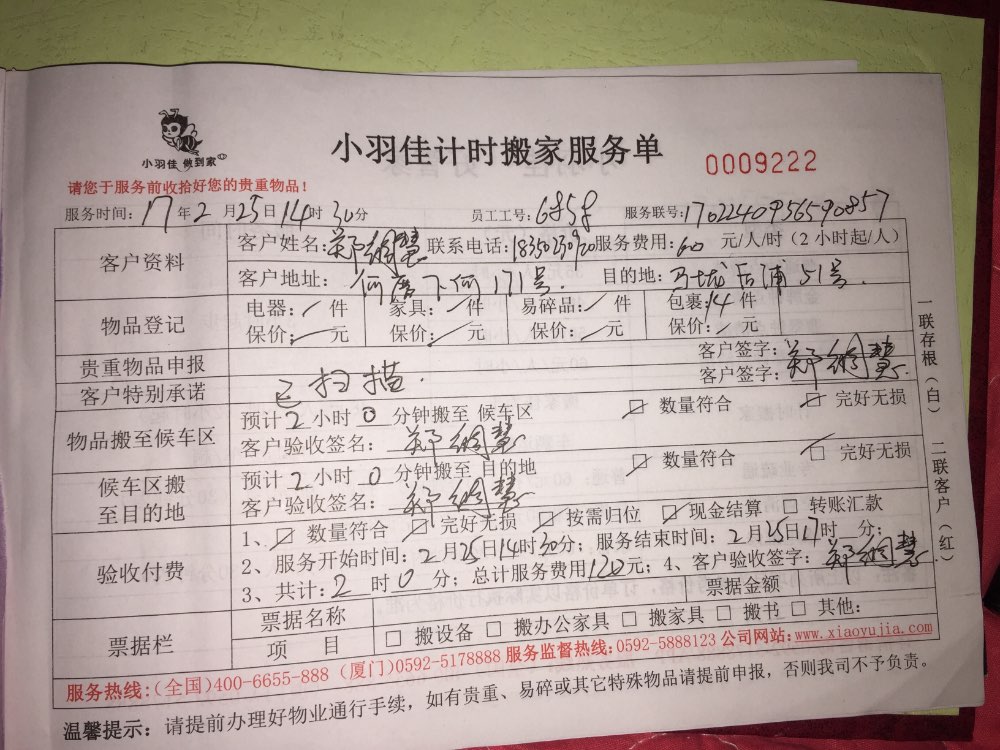 小羽佳 做到家
小羽佳计时搬家服务单 0009222
请您于服务前收拾好您的贵重物品！
服务时间：17年2月25日14时30分 员工工号：6858 服务联号：1702240956590857
客户资料 客户姓名：郑绸慧 联系电话：18350230920 服务费用：60 元/人/时（2小时起/人）
客户地址：何厝下何171号. 目的地：马垅后浦51号.
物品登记 电器：/件 家具：/件 易碎品：/件 包裹：14件
保价：/元 保价：/元 保价：/元 保价：/元
贵重物品申报 客户签字：
客户特别承诺 已扫描. 客户签字：郑绸慧
物品搬至候车区 预计2小时0分钟搬至 候车区 ☑ 数量符合 ☑ 完好无损
客户验收签名：郑绸慧
候车区搬至目的地 预计2小时0分钟搬至 目的地 ☑ 数量符合 ☑ 完好无损
客户验收签名：郑绸慧
验收付费 1、☑ 数量符合 ☑ 完好无损 ☑ 按需归位 ☑ 现金结算 □ 转账汇款
2、服务开始时间：2月25日14时30分；服务结束时间：2月25日17时 分；
3、共计：2时0分；总计服务费用120元；4、客户验收签字：郑绸慧
票据栏 票据名称 票据金额
项 目 □ 搬设备 □ 搬办公家具 □ 搬家具 □ 搬书 □ 其他：
服务热线：（全国）400-6655-888（厦门）0592-5178888 服务监督热线：0592-5888123 公司网站：www.xiaoyujia.com
温馨提示：请提前办理好物业通行手续，如有贵重、易碎或其它特殊物品请提前申报，否则我司不予负责。
一联存根（白） 二联客户（红）